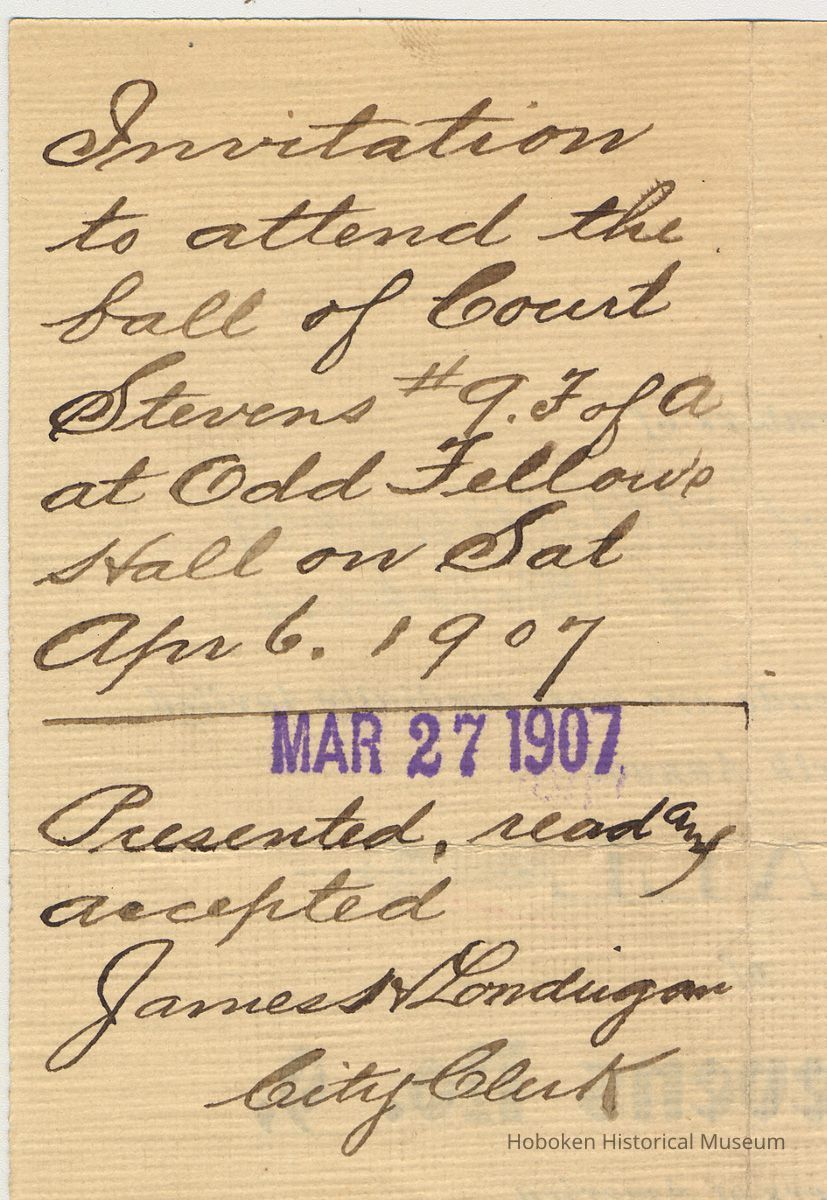 Invitation
to attend the
ball of Court
Stevens #9. F of A
at Odd Fellows
Hall on Sat
Apr 6. 1907
MAR 27 1907
Presented, read and
accepted
James H Londrigan
City Clerk
Hoboken Historical Museum